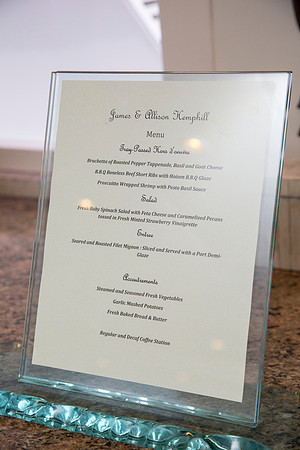 James & Allison Hemphill
Menu
Tray Passed Hors d'oeuvre
Bruchetta of Roasted Pepper Tappenade, Basil and Goat Cheese
B.B.Q Boneless Beef Short Ribs with Hoison B.B.Q Glaze
Proscuitto Wrapped Shrimp with Pesto Basil Sauce
Salad
Fresh Baby Spinach Salad with Feta Cheese and Caramelized Pecans
tossed in Fresh Minted Strawberry Vinaigrette
Entree
Seared and Roasted Filet Mignon : Sliced and Served with a Port Demi-
Glaze
Accoutrements
Steamed and Seasoned Fresh Vegetables
Garlic Mashed Potatoes
Fresh Baked Bread & Butter
Regular and Decaf Coffee Station